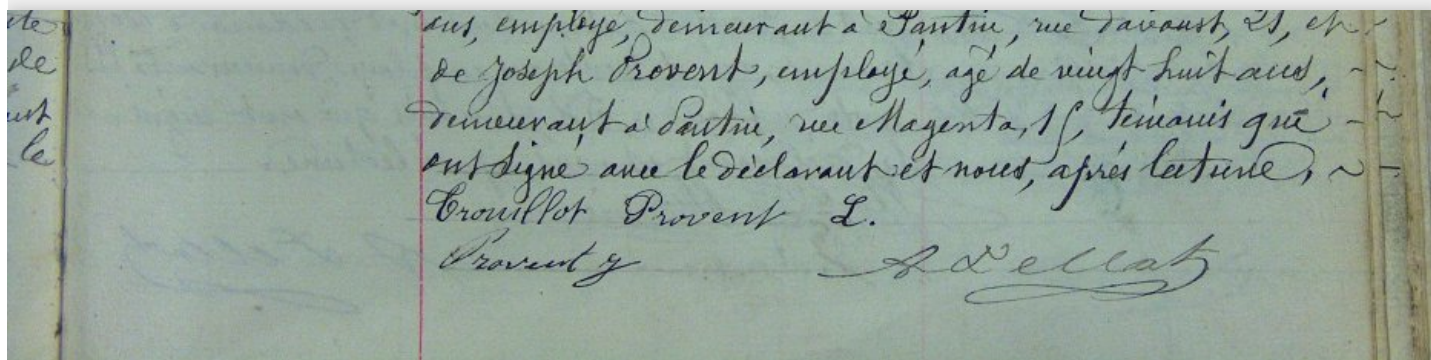 te
ans, employé, demeurant à Pantin, rue Davoust, 21, et
de
de Joseph Provent, employé, agé de vingt huit ans,
demeurant à Pantin, rue Magenta, 15, témoins qui
le
ont signé avec le déclarant et nous, après lecture,
Trouillot Provent L.
Provent J